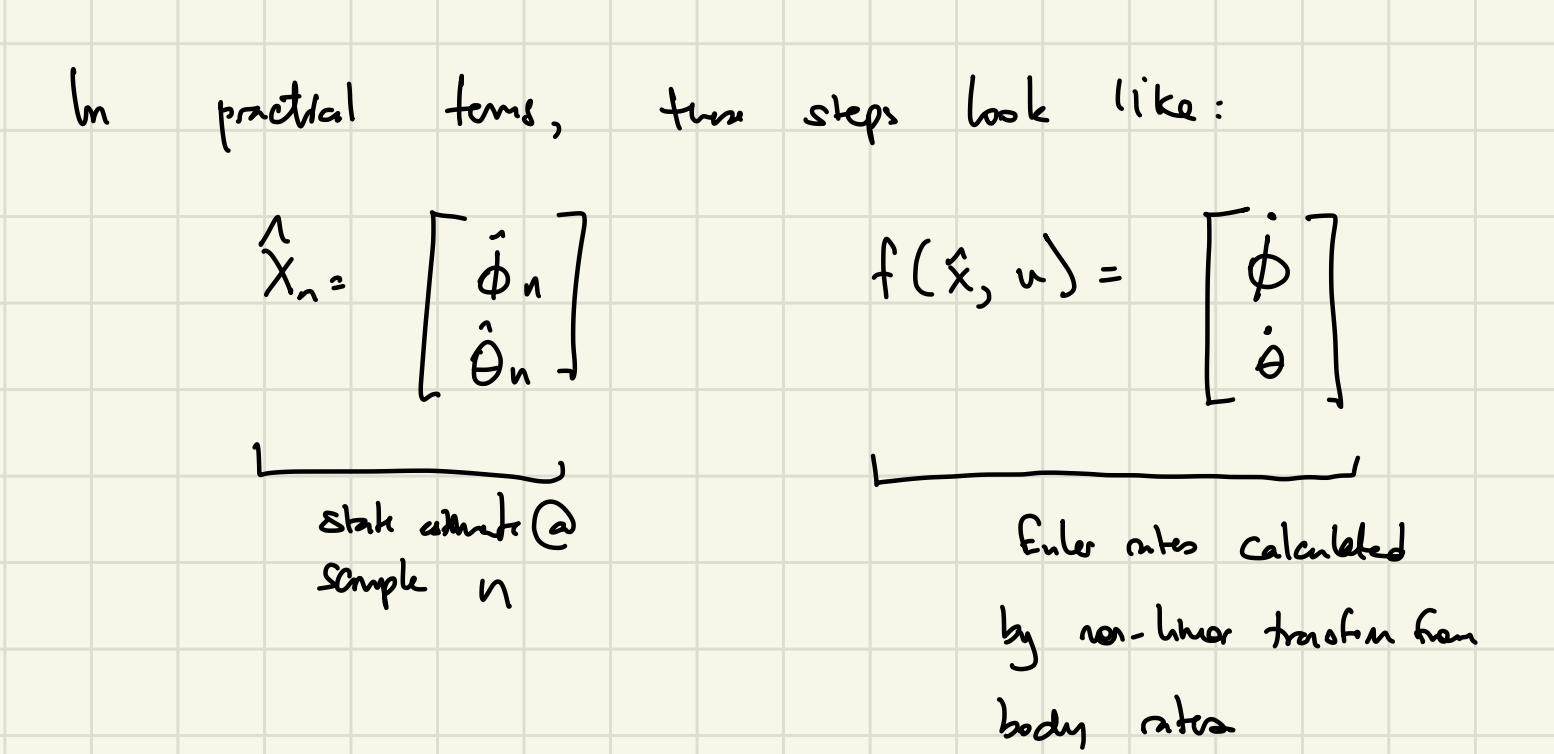 In practical terms, these steps look like:
x̂ₙ = [ϕ̂ₙ
θ̂ₙ]
f(x̂, u) = [ϕ̇
θ̇]
state estimate @
sample n
Euler rates calculated
by non-linear transform from
body rates